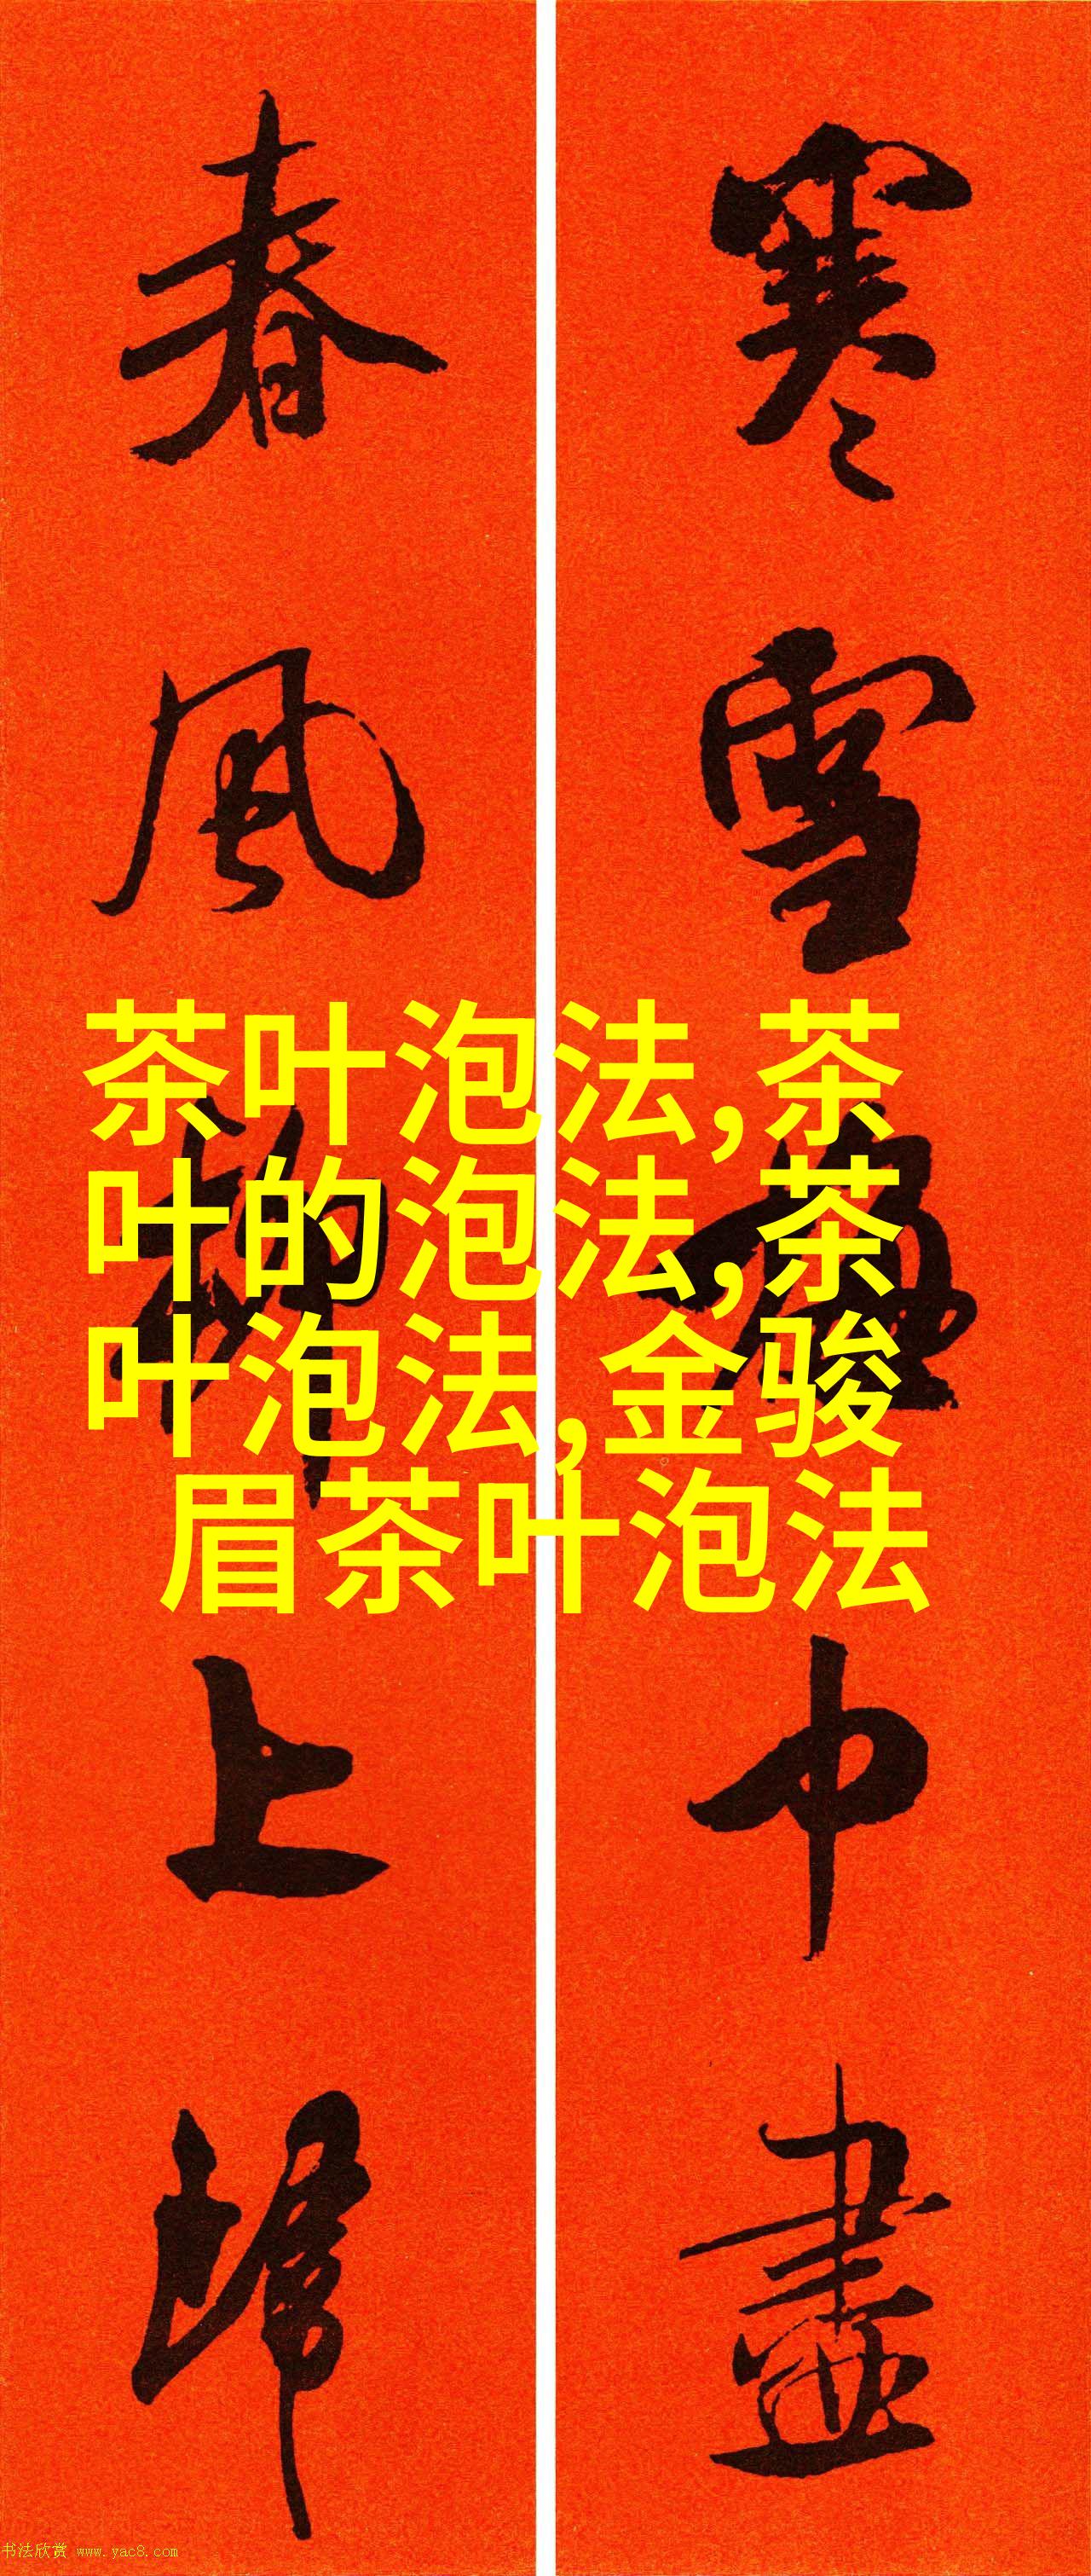 寒雪梅中盡
春風柳上歸
茶叶泡法,茶
叶的泡法,茶
叶泡法,金骏
眉茶叶泡法
书法欣赏 www.yac8.com